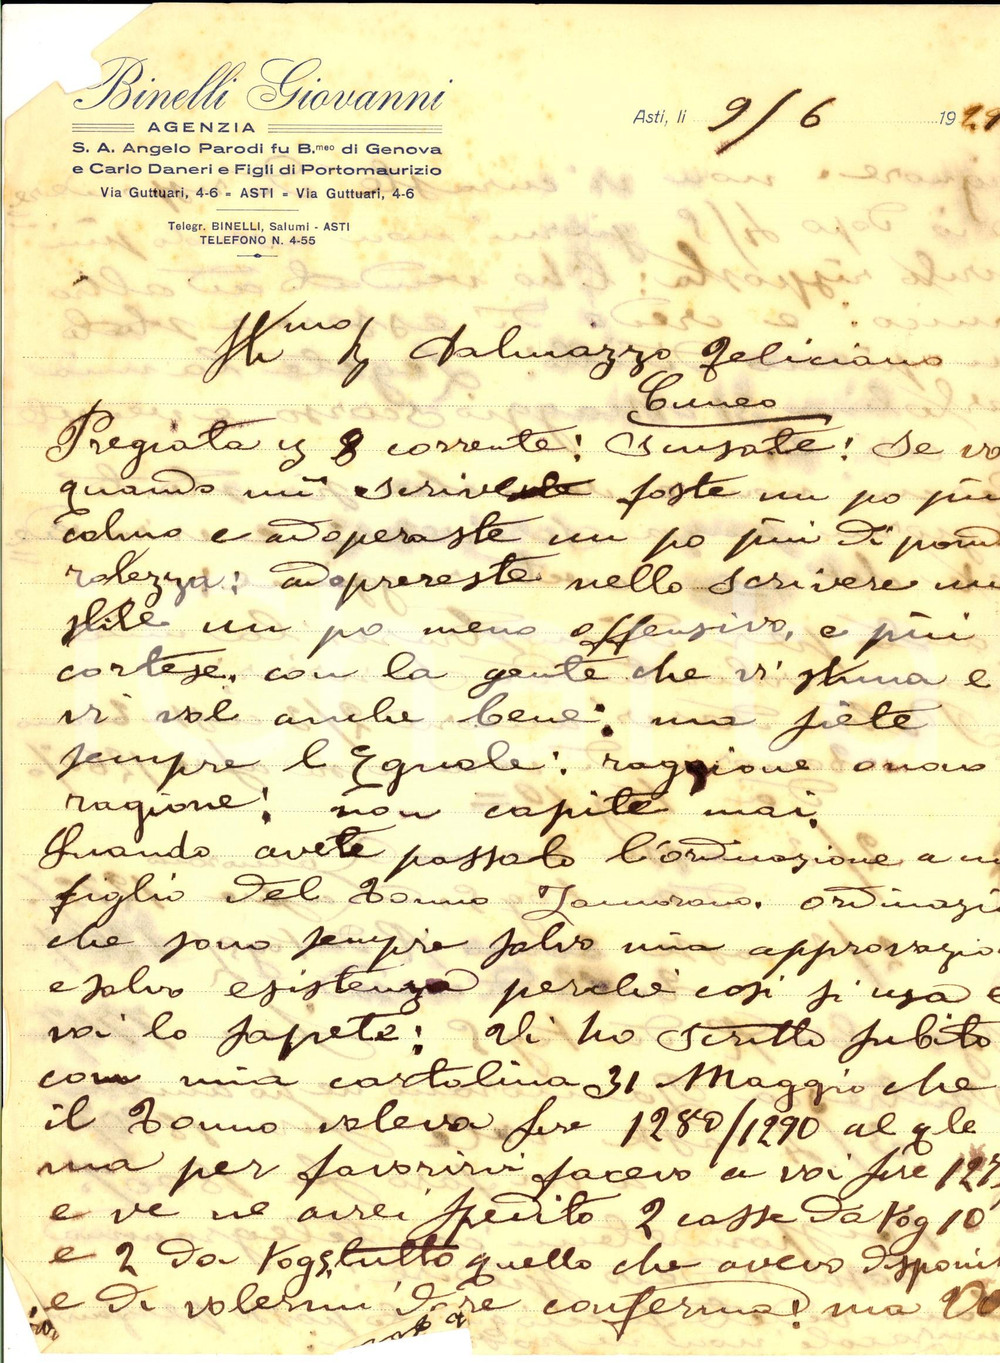 Binelli Giovanni
AGENZIA
S. A. Angelo Parodi fu B.meo di Genova
e Carlo Daneri e Figli di Portomaurizio
Via Guttuari, 4-6 = ASTI = Via Guttuari, 4-6
Telegr. BINELLI, Salumi - ASTI
TELEFONO N. 4-55
Asti, li 9/6 1929
Ill.mo Sig Dalmazzo Feliciano
Cuneo
Pregiata vs 8 corrente! Scusate! Se vo
quando mi scrivete foste un po più
calmo e adoperaste un po più di pond
ralezza; adoprereste nello scrivere un
stile un po meno offensivo, e più
cortese, con la gente che vi stima e
vi vol anche bene; ma siete
sempre l Eguale! raggione o non
ragione! non capite mai.
Quando avete passato l'ordinazione a m
figlio del Tonno Zamorano. ordinazi
che sono sempre salvo mia approvazio
e salvo esistenza perchè così si usa e
voi lo sapete; Vi ho scritto subito
con mia cartolina 31 Maggio che
il Tonno valeva lire 1280/1290 al qle
ma per favorirvi facevo a voi lire 127
e ve ne avrei spedito 2 casse da Kog 10
e 2 da Kog 5, tutto quello che avevo disponi
e di volermi dare conferma! ma Vo